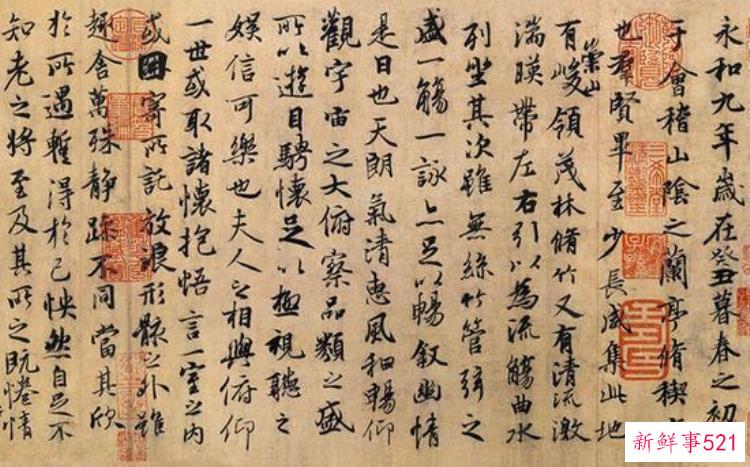 永和九年歲在癸丑暮春之初
于會稽山陰之蘭亭脩禊
也羣賢畢至少長咸集此地
有崇山峻領茂林脩竹又有清流激
湍暎帶左右引以為流觴曲水
列坐其次雖無絲竹管弦之
盛一觴一詠亦足以暢敘幽情
是日也天朗氣清惠風和暢仰
觀宇宙之大俯察品類之盛
所以遊目騁懷足以極視聽之
娛信可樂也夫人之相與俯仰
一世或取諸懷抱悟言一室之內
或因寄所託放浪形骸之外雖
趣舍萬殊靜躁不同當其欣
於所遇暫得於己怏然自足不
知老之將至及其所之既惓情
新鲜事521